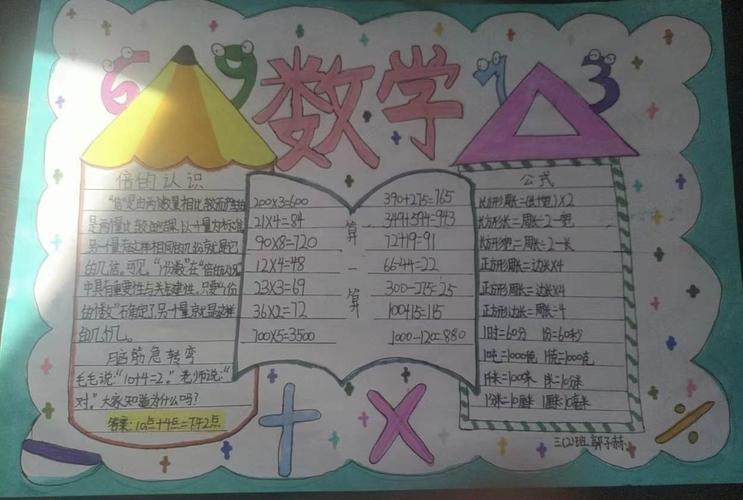 6 9 数学 7 3
倍的认识
"倍"是由两个数量相比较而产生的
是两量比较的结果,以一个量为标准
另一个量有这样相同的几份就是它
的几倍。可见,"份数"在"倍的认识
中具有重要性与关键性。只要"份
的
几个几。
脑筋急转弯
毛毛说:"10+4=2。"老师说:"
对。"大家知道为什么吗?
答案:10点+4点=下午2点
200×3=600
21×4=84
90×8=720
12×4=48
23×3=69
36×2=72
700×5=3500
算一算
390+275=765
349+594=943
72+19=91
66-44=22
300-275=25
100+15=115
1000-120=880
公式
长方形周长=(长+宽)×2
长方形长=周长÷2-宽
长方形宽=周长÷2-长
正方形周长=边长×4
正方形周长=边长×4
正方形边长=周长÷4
1时=60分 1分=60秒
1吨=1000千克 1千克=1000克
1千米=1000米 1米=10分米
1分米=10厘米 1厘米=10毫米
+ × ÷
三(2)班 郭子赫